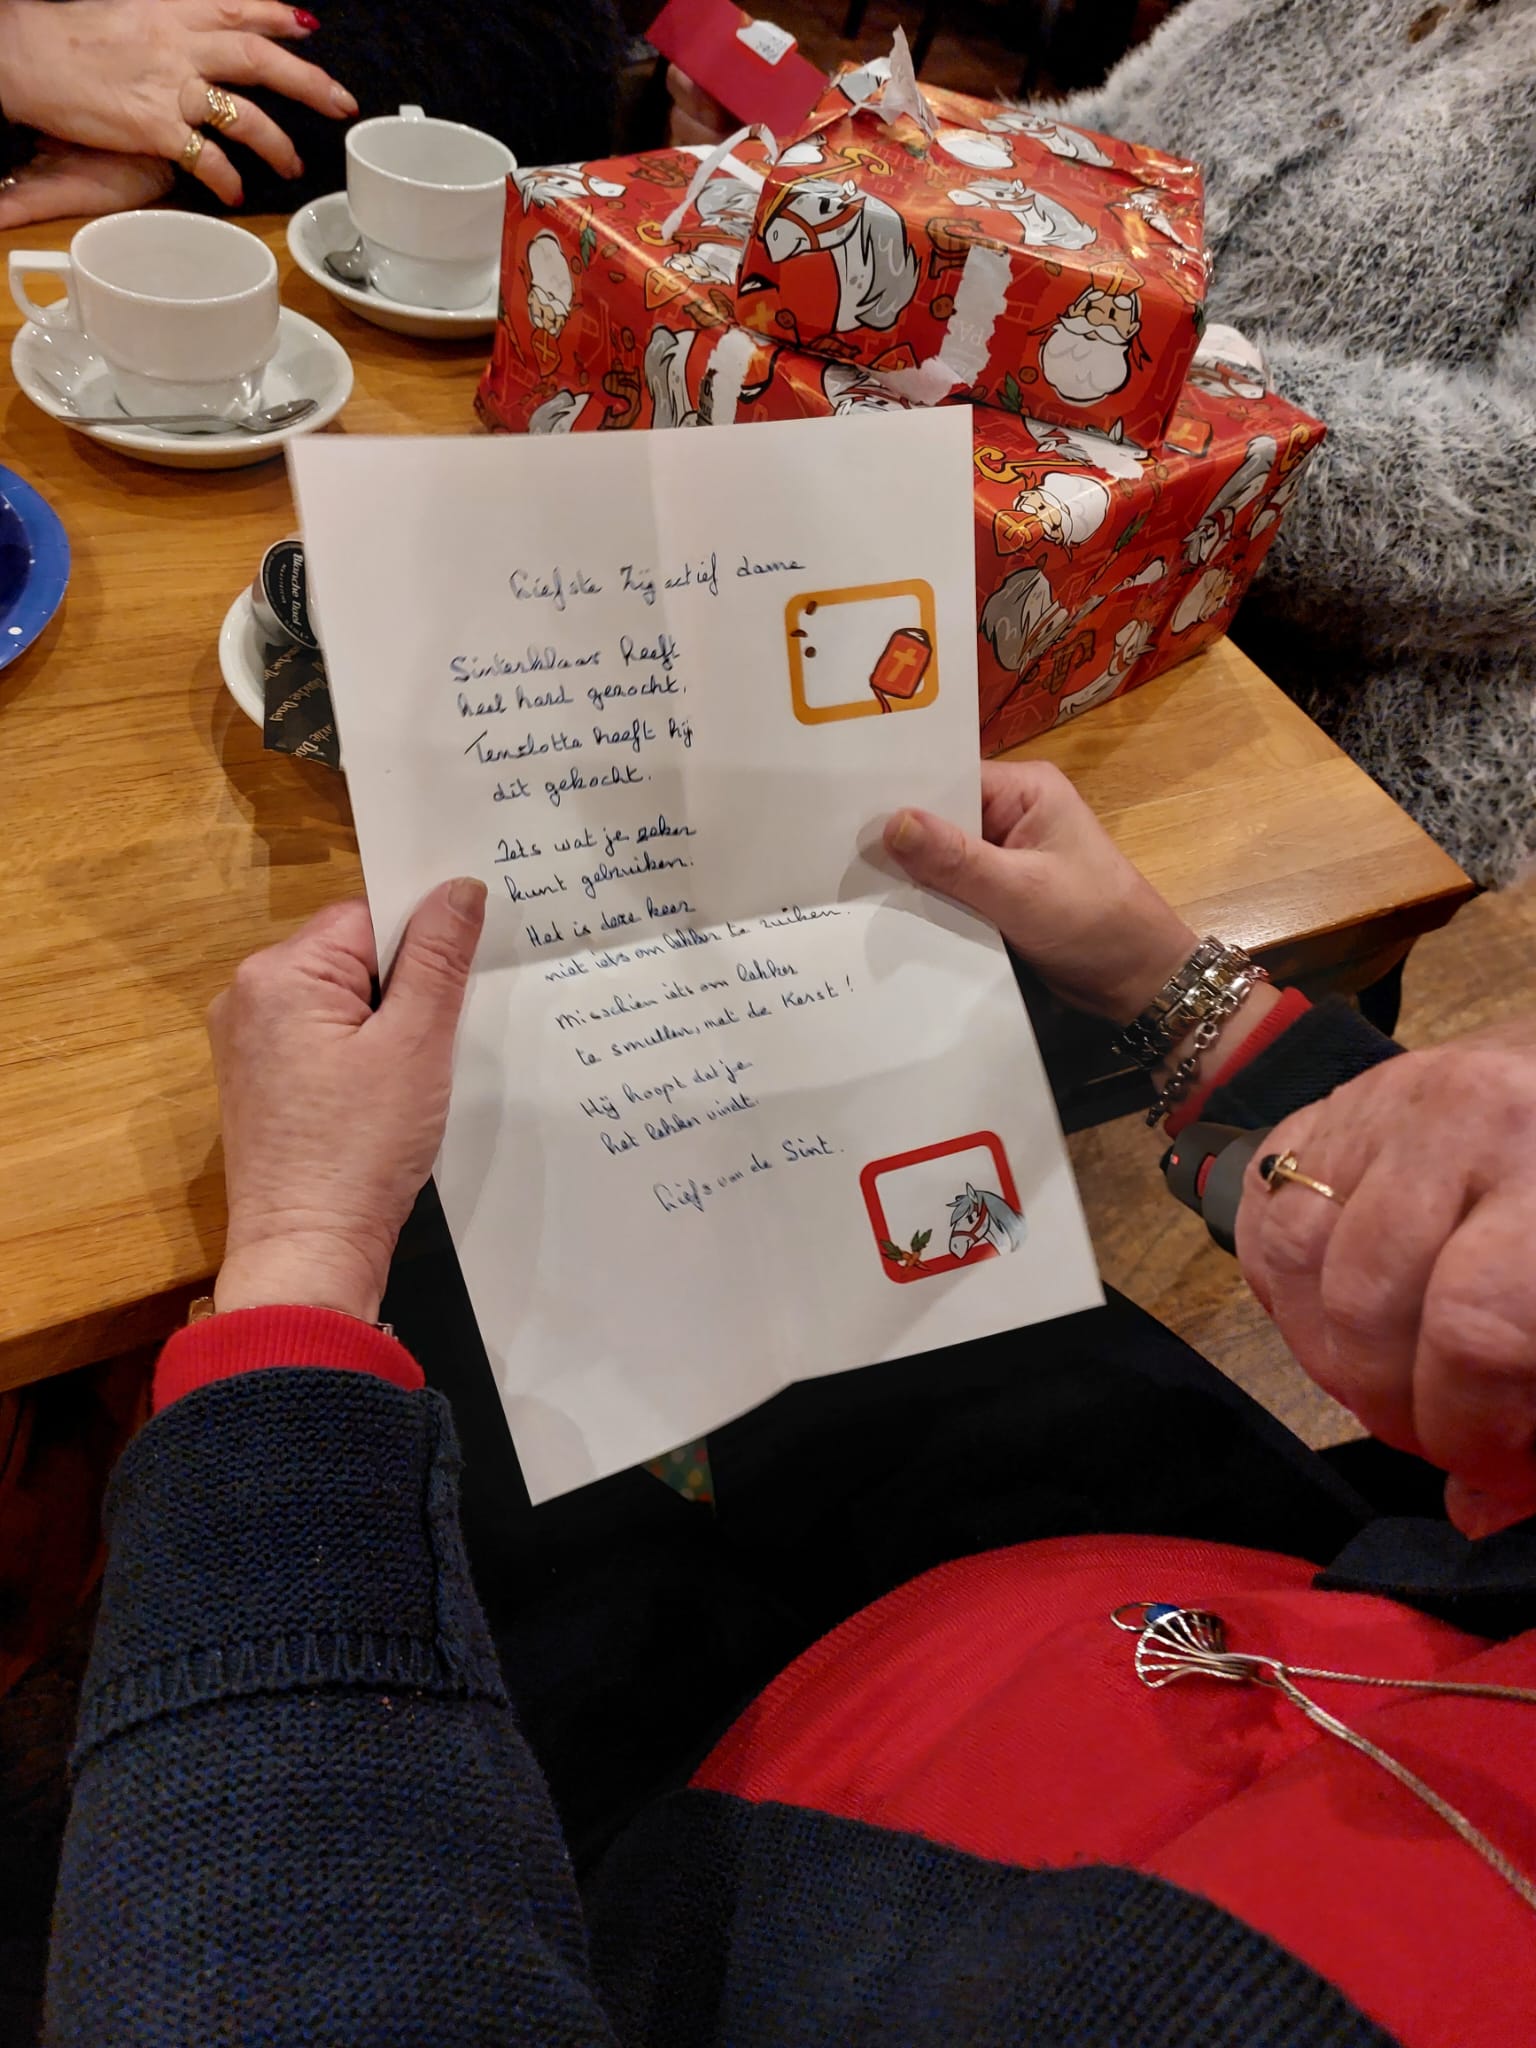 Liefste Zij actief dame
Sinterklaas heeft
heel hard gezocht.
Tenslotte heeft hij
dit gekocht.
Iets wat je zeker
kunt gebruiken.
Het is deze keer
niet iets om lekker te ruiken.
Misschien iets om lekker
te smullen, met de Kerst!
Hij hoopt dat je
het lekker vindt.
Liefs van de Sint.
Blanche Dael